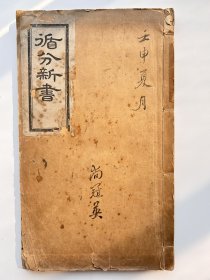 壬申夏月
循分新書
尚冠英